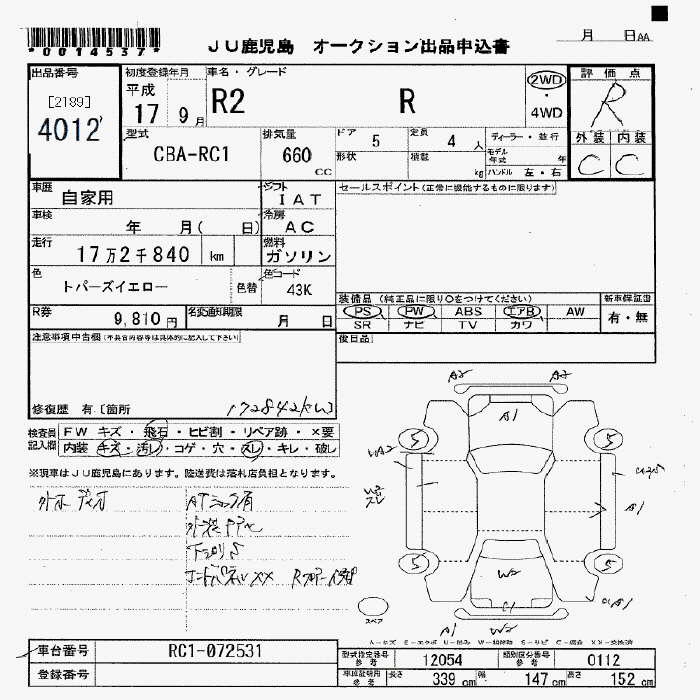 *0014537*
JU鹿児島 オークション出品申込書
月 日AA
出品番号
[2189]
4012
初度登録年月
平成
17 9月
車名・グレード
R2 R
2WD
・
4WD
評価点
R
外装 内装
C C
型式
CBA-RC1
排気量
660
CC
ドア 5
定員 4人
形状
積載 kg
ディーラー・並行
モデル年式 年
ハンドル 左・右
車歴
自家用
シフト
IAT
セールスポイント(正常に機能するものに限ります)
車検
年 月( 日)
冷房
AC
走行
17万2千840 km
燃料
ガソリン
色
トパーズイエロー
色替
色コード
43K
装備品(純正品に限り○をつけてください)
新車保証書
PS PW ABS エアB AW
SR ナビ TV カワ
有・無
R券
9,810円
名変通知期限
月 日
後日品
注意事項申告欄(不具合内容等は具体的に記入して下さい)
修復歴 有〔箇所
172842km〕
検査員
記入欄
FW キズ・飛石・ヒビ割・リペア跡・×要
内装 キズ・汚レ・コゲ・穴・スレ・キレ・破レ
※現車はJU鹿児島にあります。陸送費は落札店負担となります。
A2 A2
A1
5 5
A1
5 5
W2
C1
A1 W2
スペア
A-キズ E-エクボ U-凹み W-補修跡 S-サビ C-腐食 XX-交換済
車台番号
RC1-072531
登録番号
型式指定番号
参考
12054
類別区分番号
参考
0112
車庫証明用
参考
長さ 339 cm
幅 147 cm
高さ 152 cm